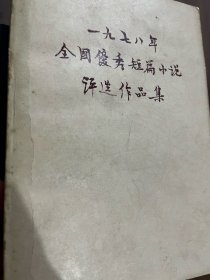 一九七八年
全國優秀短篇小说
评选作品集